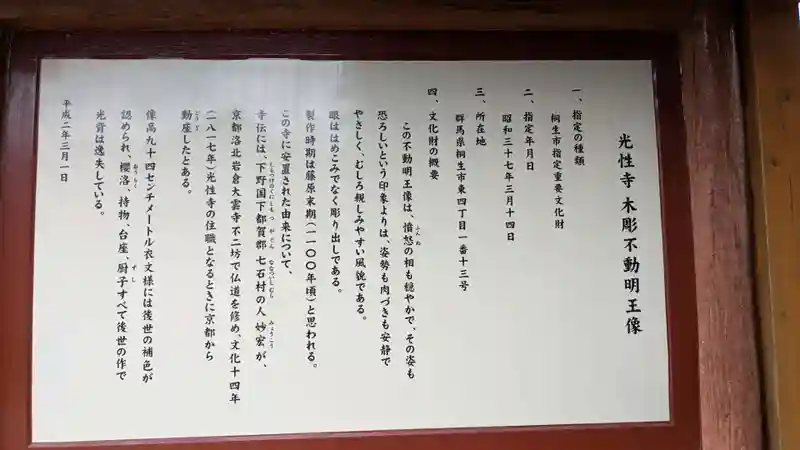 光性寺 木彫不動明王像
一、指定の種類
桐生市指定重要文化財
二、指定年月日
昭和三十七年三月十四日
三、所在地
群馬県桐生市東四丁目一番十三号
四、文化財の概要
この不動明王像は、憤怒の相も穏やかで、その姿も
恐ろしいという印象よりは、姿勢も肉づきも安静で
やさしく、むしろ親しみやすい風貌である。
眼ははめこみでなく彫り出しである。
製作時期は藤原末期(一一〇〇年頃)と思われる。
この寺に安置された由来について、
寺伝には、下野国下都賀郡七石村の人妙宏が、
京都洛北岩倉大雲寺不二坊で仏道を修め、文化十四年
(一八一七年)光性寺の住職となるときに京都から
動座したとある。
像高九十四センチメートル衣文様には後世の補色が
認められ、櫻洛、持物、台座、厨子すべて後世の作で
光背は逸失している。
平成二年三月一日